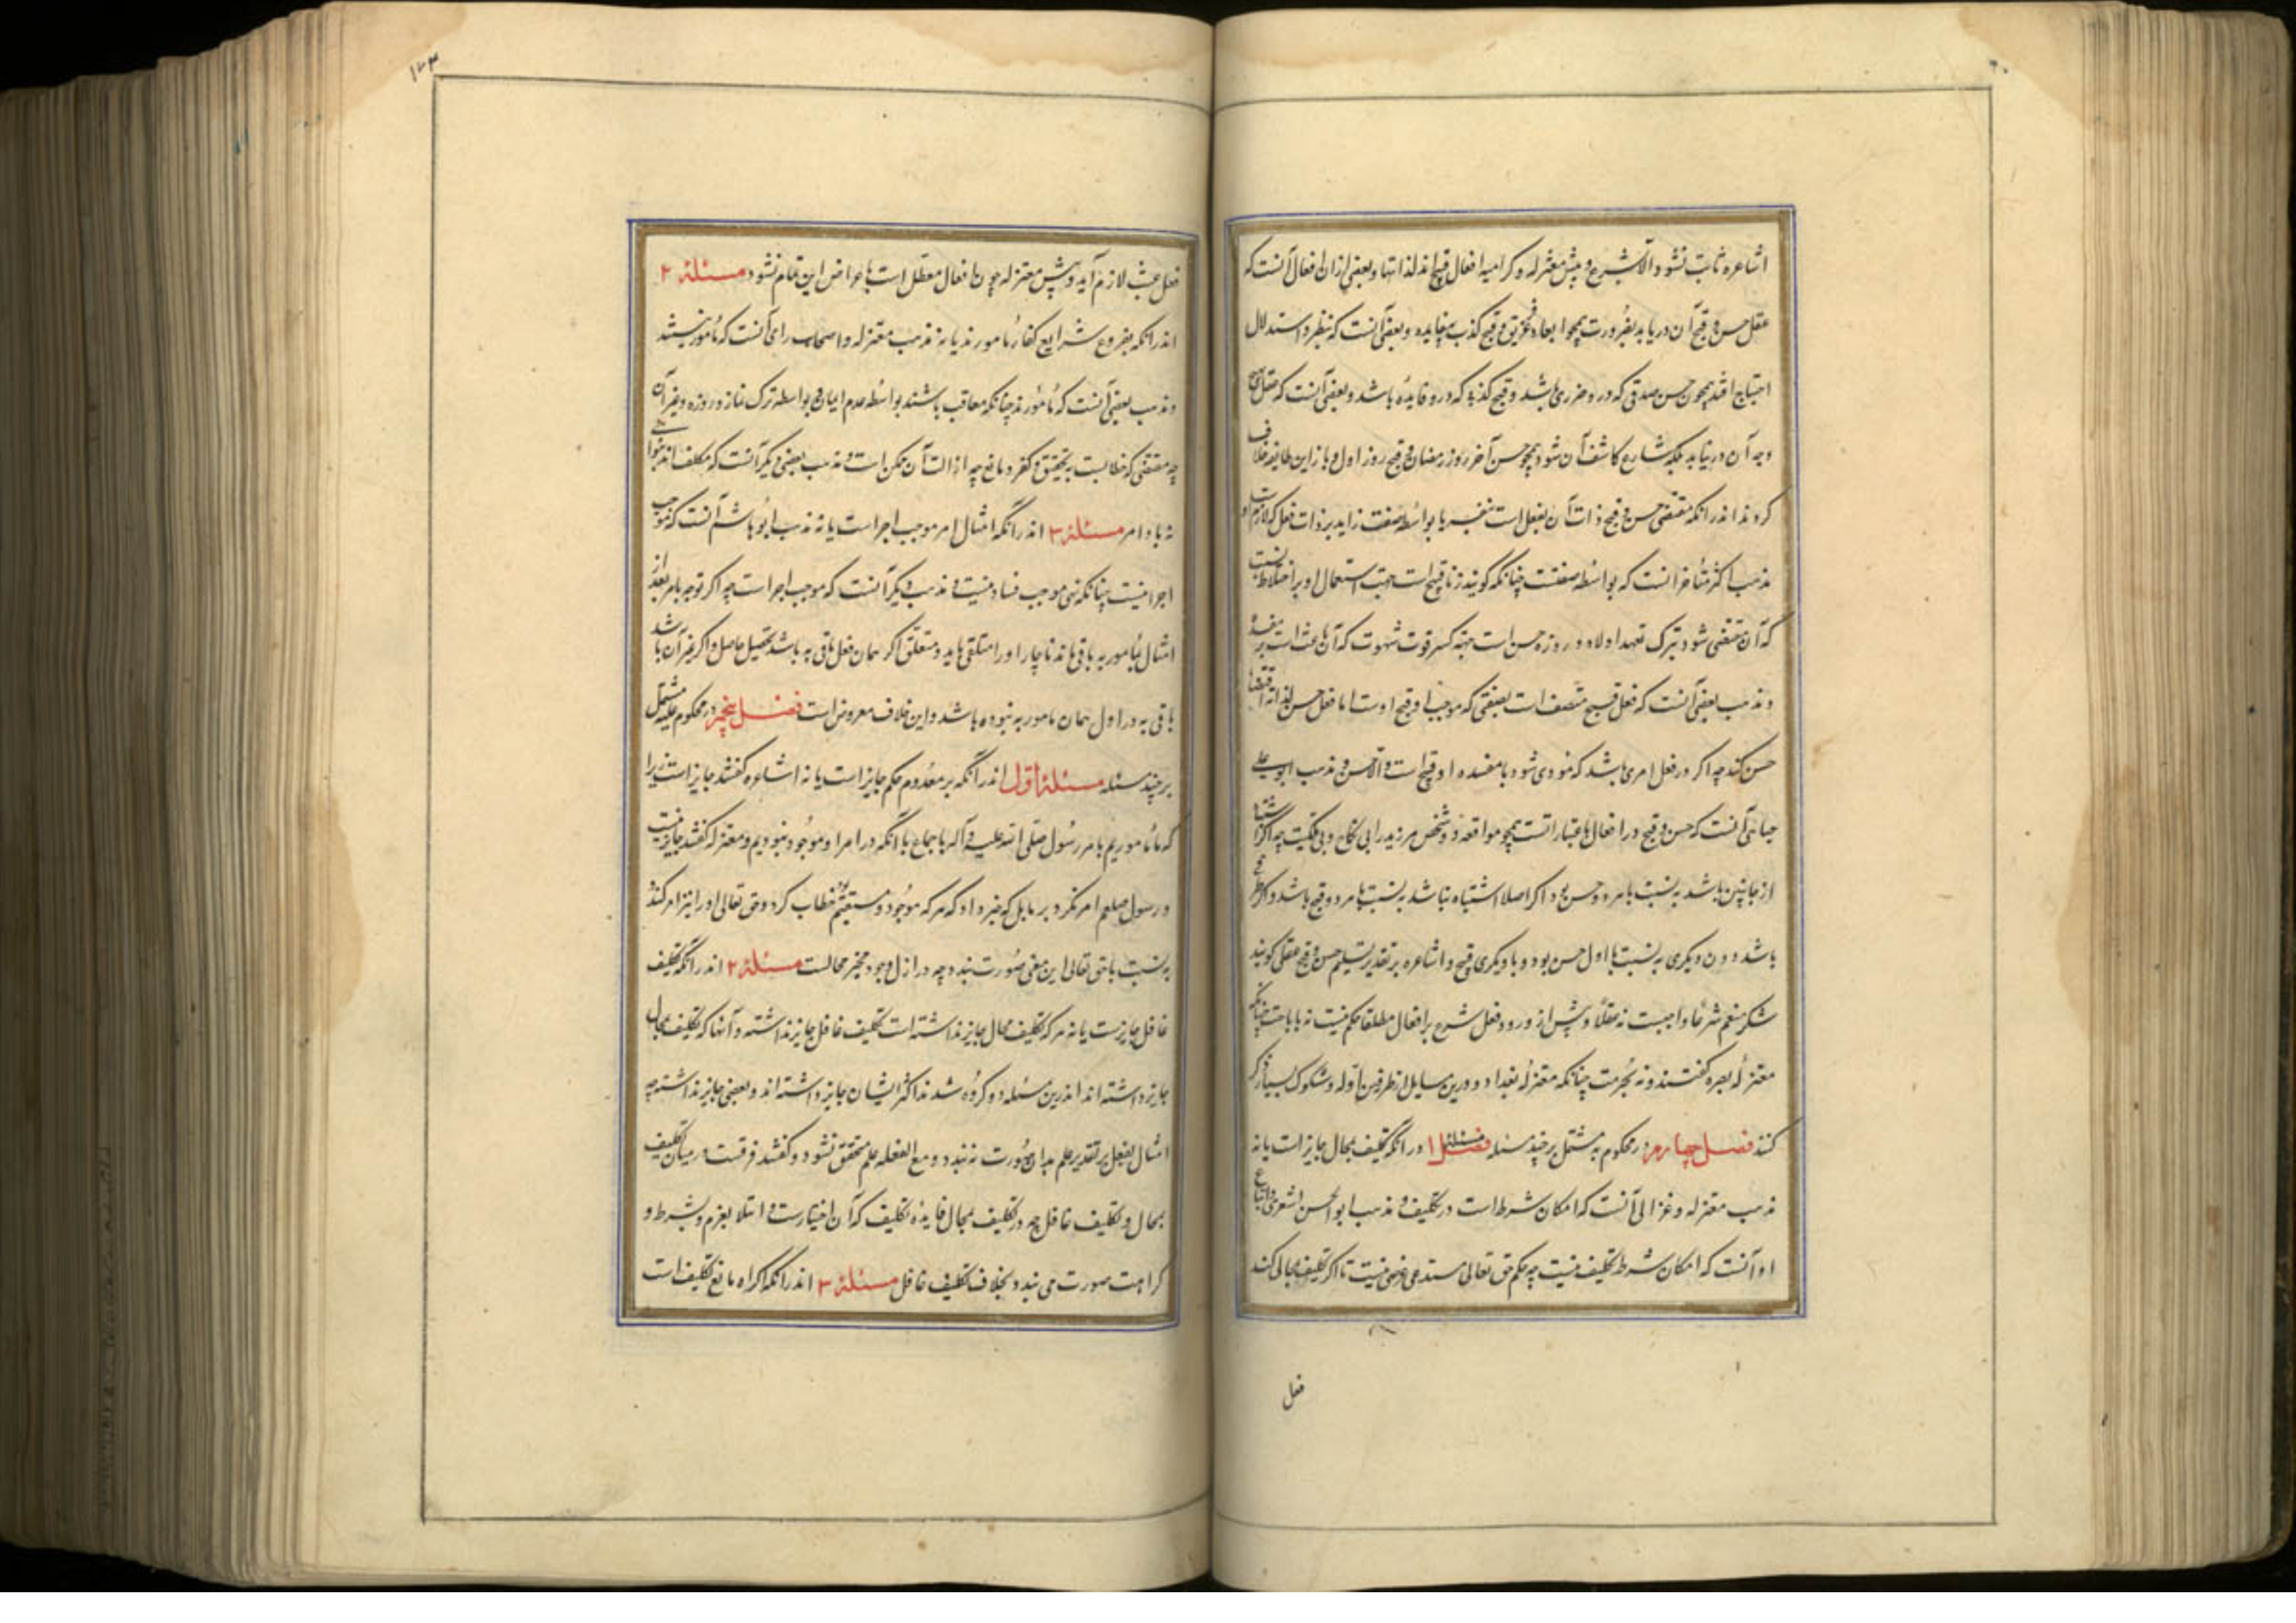 اشاعره ثابت نشود الا بشرع و پیش معتزله و کرامیه افعال قبیح اند لذاتها و بعضی ازان افعال آنست که
عقل حسن و قبح آن دریابد بضرورت همچو ابعاد غریق و قبح کذب بیفایده و بعضی آنست که بنظر و استدلال
احتیاج افتد همچون حسن صدقی که درو ضرری باشد و قبح کذبی که درو فایده باشد و بعضی آنست که عقل
وجه آن درنیابد بلکه شارع کاشف آن شود همچو حسن آخر روز رمضان و قبح روز اول و باز این طایفه خلاف
کردند اندر آنکه مقتضی حسن و قبح ذات آن فعل است یا بواسطه صفت زاید بر ذات فعل که لازم
مذهب اکثر متأخر آنست که بواسطه صفتست چنانکه گویند زنا قبیح است جهت اشتمال او بر اختلاط نسب
که آن مقتضی شود بترک تعهد اولاد و روزه حسن است جهة کسر قوت شهوت که آن باعث است بر مفسده
و مذهب بعضی آنست که فعل قبیح متصف است بصفتی که موجب قبح اوست اما فعل حسن لذاته اقتضا
حسن کند چه اگر در فعل امری باشد که مؤدی شود با مفسده او قبیح است و الا حسن و مذهب ابوعلی
جبائی آنست که حسن و قبح در افعال باعتباراتست همچو مواقعه دو شخص مر زید را بی نکاح و بی ملکیت چه اگر اشتباه
از جانبین باشد به نسبت با هر دو حسن بود و اگر اصلا اشتباه نباشد به نسبت با هر دو قبیح باشد و اگر
باشد دون دیگری به نسبت با اول حسن بود و با دیگری قبیح و اشاعره بر تقدیر تسلیم حسن و قبح عقلی گویند
شکر منعم شرعا واجبست نه عقلا و پیش از ورود فعل شرع بر افعال مطلقا حکم نیست نه باباحت چنانکه
معتزلهٔ بصره گفتند و نه بحرمت چنانکه معتزلهٔ بغداد و درین مسایل از طرفین ادله و شکوک بسیار ذکر
کنند فصل چهارم در محکوم به مشتمل بر چند مسئله مسئله ۱ در آنکه تکلیف بمحال جایز است یا نه
مذهب معتزله و غزالی آنست که امکان شرط است در تکلیف و مذهب ابوالحسن اشعری و اتباع
او آنست که امکان شرط تکلیف نیست چه حکم حق تعالی مستدعی غرضی نیست تا اگر تکلیف بمحالی کند
فعل
۱۲۳
فعل عبث لازم آید و پیش معتزله چون افعال معلل است باغراض این تمام نشود مسئله ۲
اندر آنکه بفروع شرایع کفار مامورند یا نه مذهب معتزله و اصحاب رای آنست که مامور نیستند
و مذهب بعضی آنست که مامورند چنانکه معاقب باشند بواسطه عدم ایمان و بواسطه ترک نماز و روزه و غیر آن
چه مقتضی که خطابست بتحقیق و کفر و مانع چه ازالت آن ممکن است و مذهب بعضی دیگر آنست که مکلف اند بنواهی
نه باوامر مسئله ۳ اندر آنکه امتثال امر موجب اجزا است یا نه مذهب ابوهاشم آنست که موجب
اجزا نیست چنانکه نهی موجب فساد نیست و مذهب دیگر آنست که موجب اجزاست چه اگر توجه بامر بعد از
امتثال بمامور به باقی ماند ناچار او را متعلقی باید و متعلق اگر همان فعل باقی به باشد تحصیل حاصل و اگر غیر آن باشد
باقی به در اول همان مامور به نبوده باشد و این خلاف مفروض است فصل پنجم در محکوم علیه مشتمل
بر چند مسئله مسئلهٔ اول اندر آنکه بر معدوم حکم جایز است یا نه اشاعره گفتند جایز است زیرا
که ما ماموریم بامر رسول صلی الله علیه و آله باجماع با آنکه در امر او موجود نبودیم و معتزله گفتند جایز نیست
و رسول صلعم امر نکرد بر ما بل که خبر داد که هر که موجود و مستقیم خطاب گردد حق تعالی او را نیز امر کند
به نسبت با حق تعالی این معنی صورت نبندد چه در ازل وجود مخبر محالست مسئله ۲ اندر آنکه تکلیف
غافل جایزست یا نه هر که تکلیف محال جایز نداشته است تکلیف غافل جایز نداشته و آنها که تکلیف محال
جایز داشته اند اندرین مسئله دو گروه شدند اکثر ایشان جایز داشته اند و بعضی جایز نداشته چه
امتثال بفعل بر تقدیر علم بدان صورت بندد و مع الغفله علم محقق نشود و گفتند فرقست درمیان تکلیف
بمحال و تکلیف غافل چه در تکلیف بمحال فایده تکلیف که آن اختیارست و ابتلا بعزم و بشرط و
کراهت صورت می بندد بخلاف تکلیف غافل مسئله ۳ اندر آنکه اکراه مانع تکلیف است